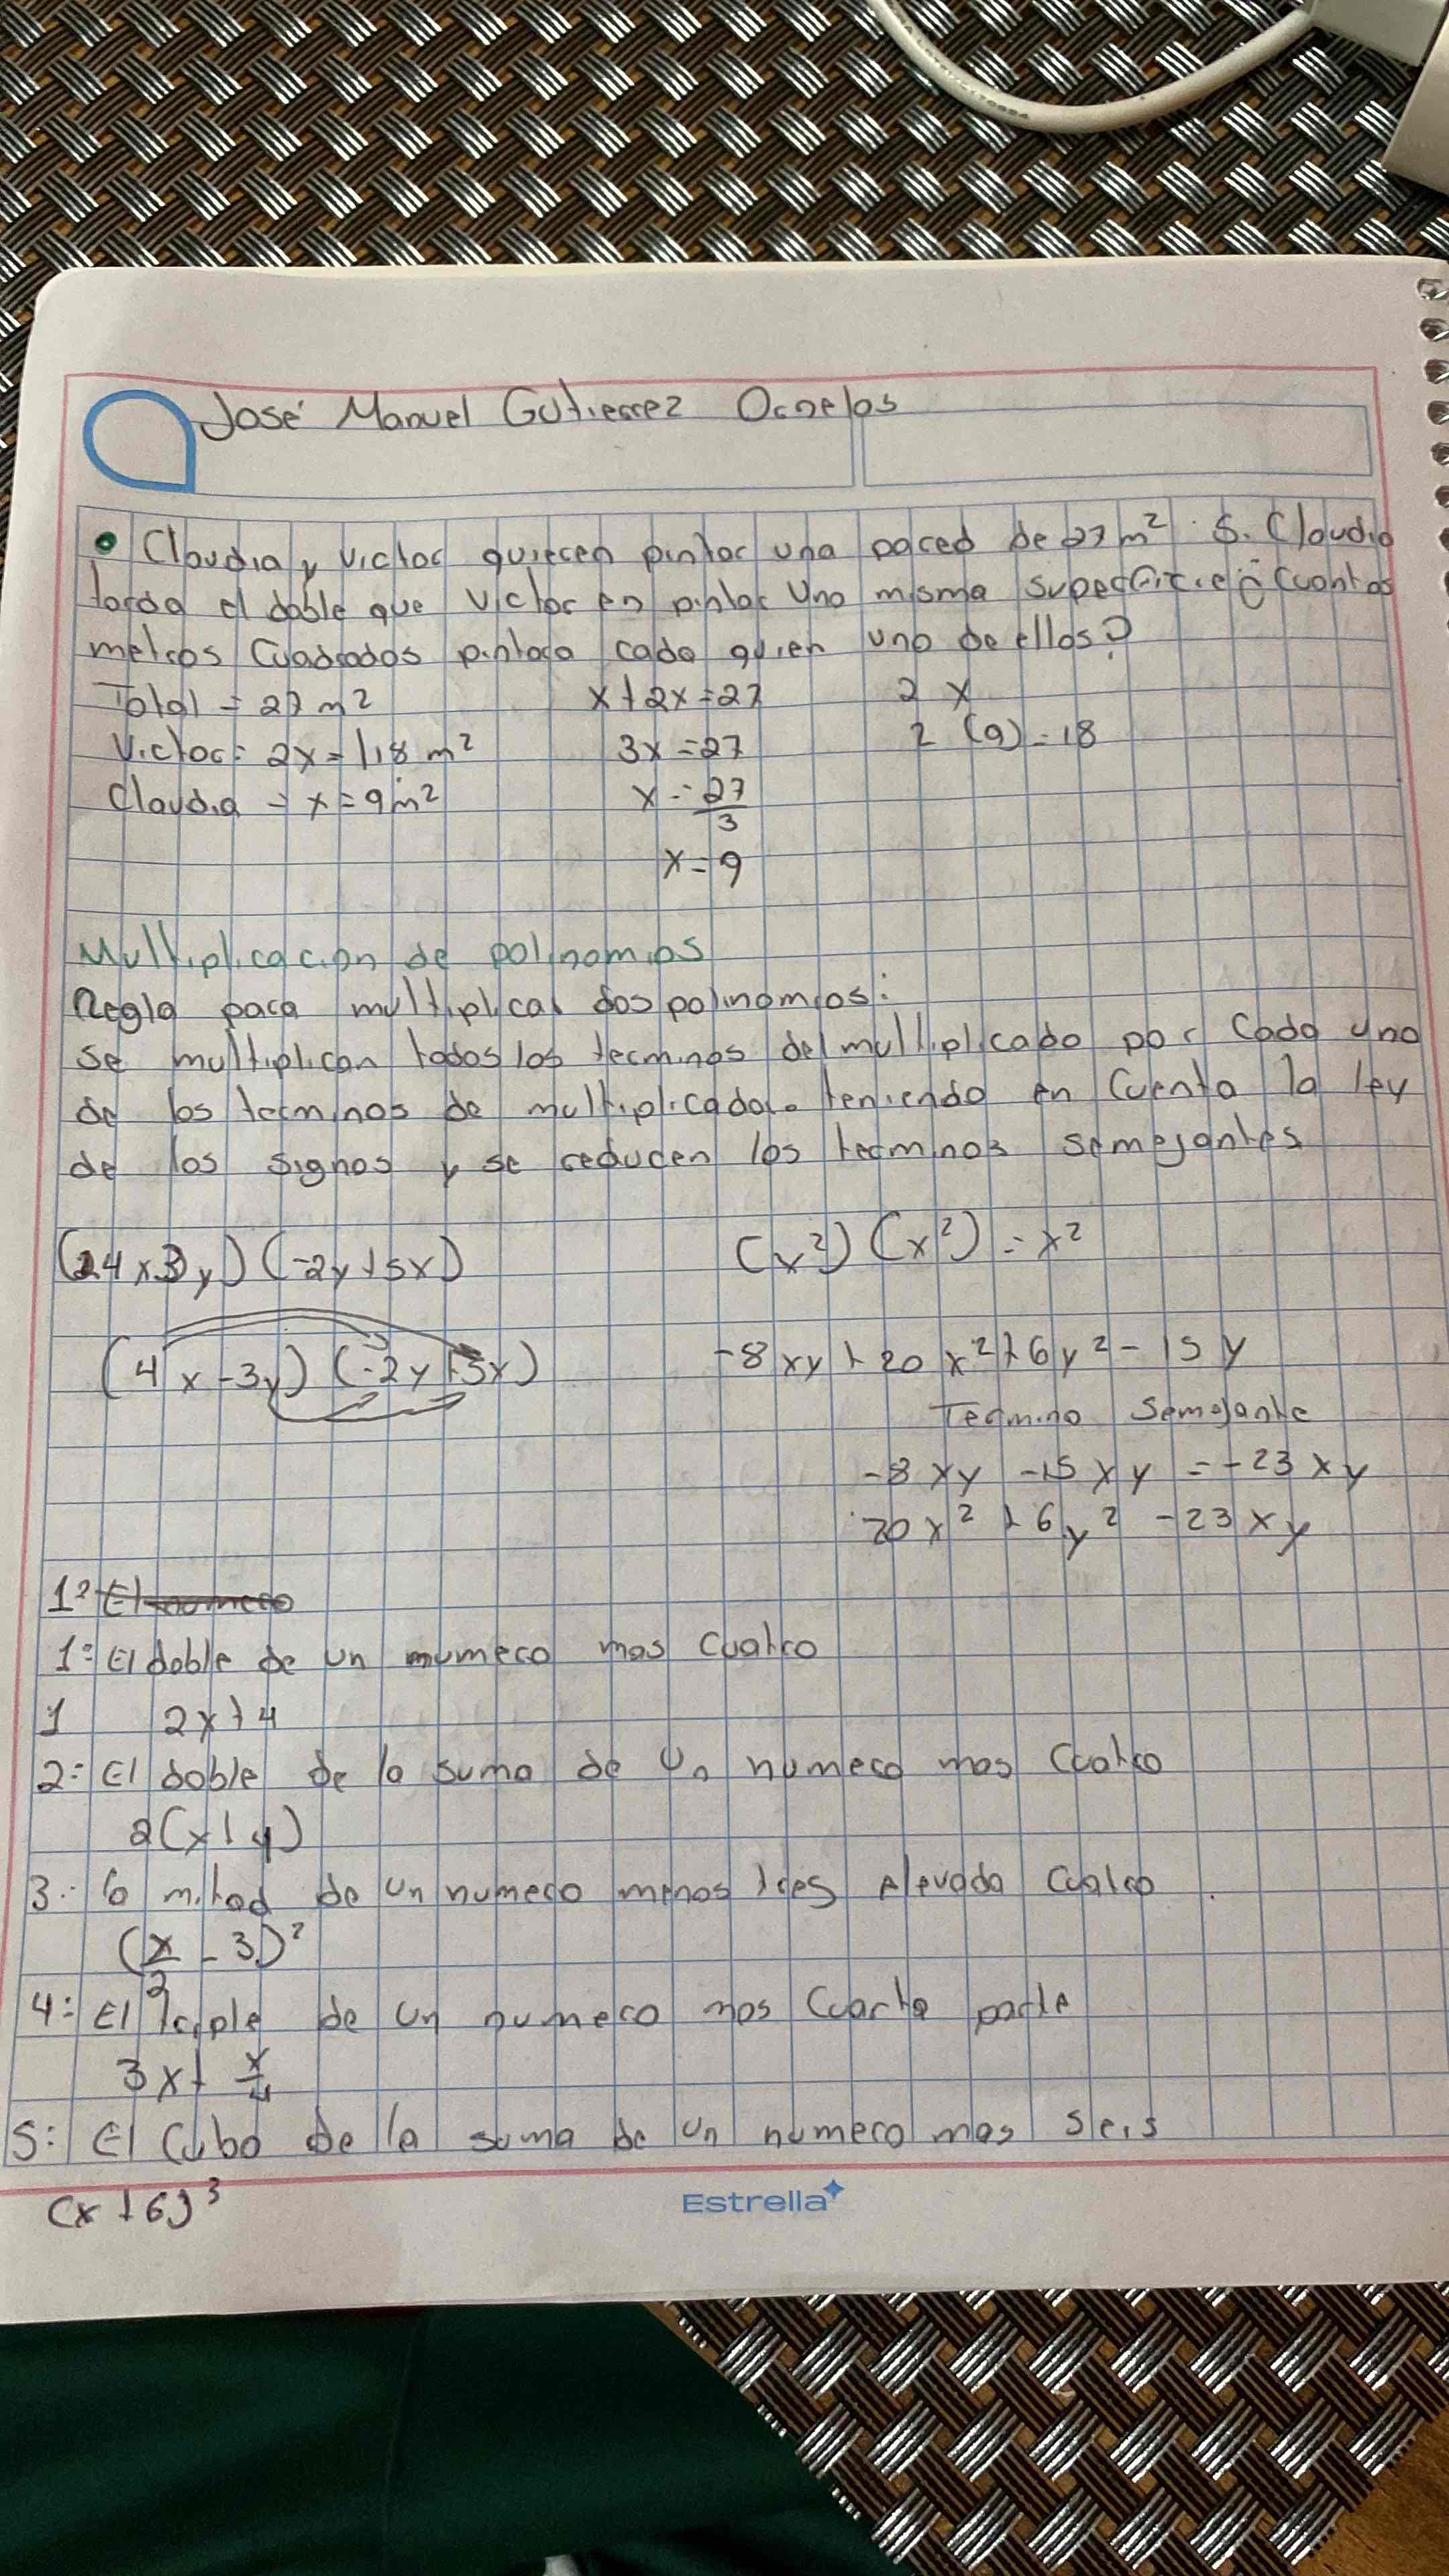 José Manuel Gutierrez Ornelas
• Claudia y Victor quieren pintar una pared de 27 m² . Si Claudia
tarda el doble que Victor en pintar una misma superficie ¿Cuantos
metros Cuadrados pintara cada quien uno de ellos?
Total = 27 m² x+2x=27 2 x
Victor: 2x=18 m² 3x=27 2 (9)=18
Claudia = x=9m² x=27/3
x=9
Multiplicacion de polinomios
Regla para multiplicar dos polinomios:
se multiplican todos los terminos del multiplicado por Cada uno
de los terminos de multiplicador teniendo en Cuenta la ley
de los signos y se reducen los terminos semejantes
(24x3y) (-2y+5x) (x²) (x²) = x²
(4x-3y) (-2y+5x) -8xy+20x²+6y²-15y
Termino Semejante
-8xy -15xy = -23xy
20x²+6y²-23xy
1: El numero
1: El doble de un mumero mas Cuatro
1 2x+4
2: El doble de la suma de Un numero mas Cuatro
2(x+4)
3.- la mitad de un numero menos tres elevada Cuatro
(x/2 - 3)²
4: El Triple de un numero mas Cuarta parte
3x+ x/4
5: El Cubo de la suma de un numero mas seis
(x+6)³
Estrella